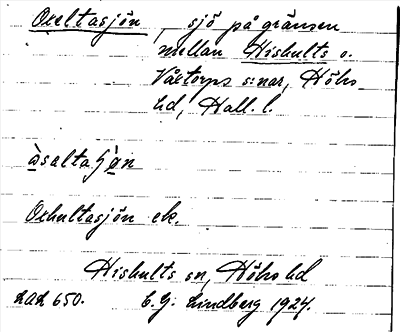 Oxeltasjön, sjö på gränsen
mellan Hishults o.
Våxtorps s:nar, Höks
hd, Hall. l.
àsaltaʃàn
Oxhultasjön ek.
Hishults sn, Höks hd
LAL 650. C. G. Lindberg 1924.